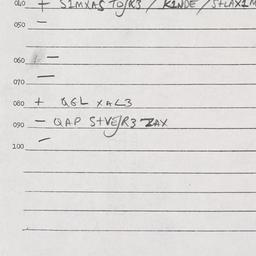 040 + SIMXAS TO/R3 / KINDE / S+LAXIM
050 -
060 -
070 -
080 + QGL XAL3
090 - QAP S+VE/R3 ZAX
100 -